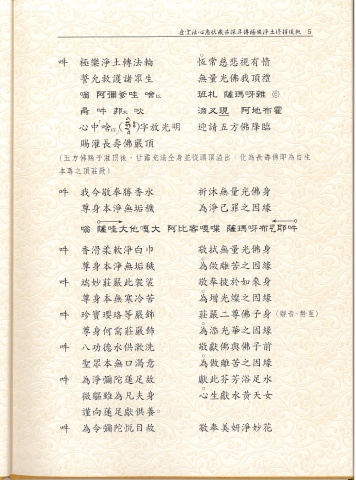 5
吽 極樂淨土轉法輪 恆常慈悲視有情
誓允救護諸眾生 無量光佛我頂禮
嗡 阿彌爹哇 班札 薩瑪呀雜
吽 吙 誦又現 阿地布霍
心中 字放光明 迎請五方佛降臨
賜灌長壽佛嚴頂
(五方佛賜予灌頂後,甘露充滿全身並從頭頂溢出,化為長壽佛即為自生
本尊之頂莊嚴)
吽 我今敬奉勝香水 祈沐無量光佛身
尊身本淨無垢穢 為淨已罪之因緣
嗡 薩哇大他嘎大 阿比客嘎喋 薩瑪呀 吽
吽 香滑柔軟淨白巾 敬拭無量光佛身
尊身本淨無垢穢 為做離苦之因緣
吽 端妙莊嚴此袈裟 敬奉披於如來身
尊身本無寒冷苦 為增光燦之因緣
吽 珍寶瓔珞等嚴飾 莊嚴二尊佛子身(觀音、勢至)
尊身何需莊嚴飾 為添光華之因緣
吽 八功德水供漱洗 敬獻佛與佛子前
聖眾本無口渴意 為做離苦之因緣
吽 為淨彌陀蓮足故 獻此芬芳浴足水
微軀雖為凡夫身 心生獻水黃天女
謹向蓮足獻供養。
吽 為令彌陀悅目故 敬奉美妍淨妙花